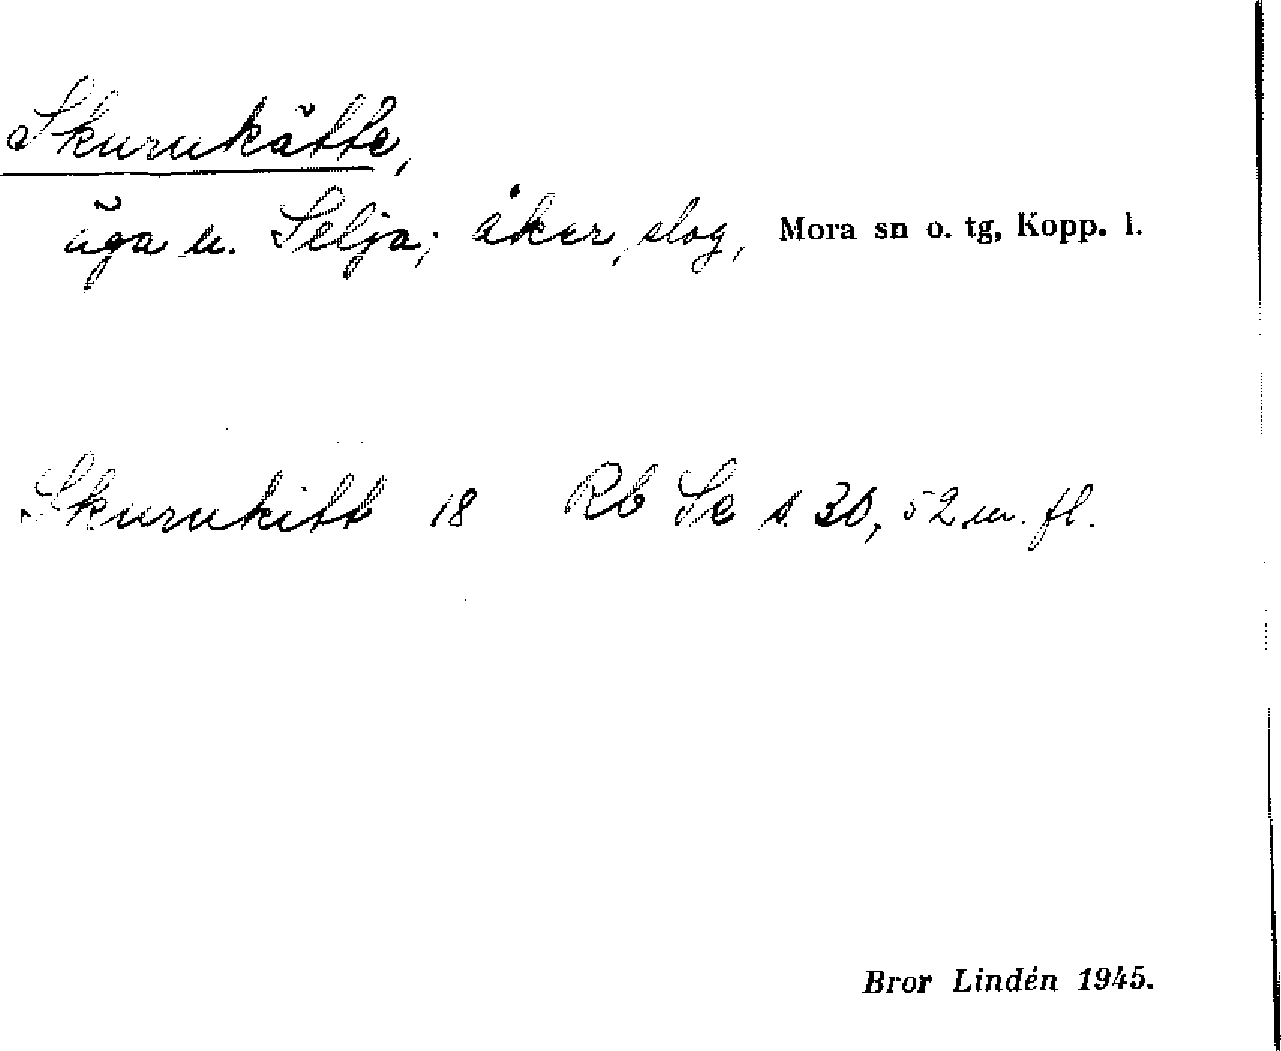 Skurukätte,
äga u. Selja; åker, slog, Mora sn o. tg, Kopp. l.
Skurukitt 18 Rb Se s. 30, 52 m. fl.
Bror Lindén 1945.